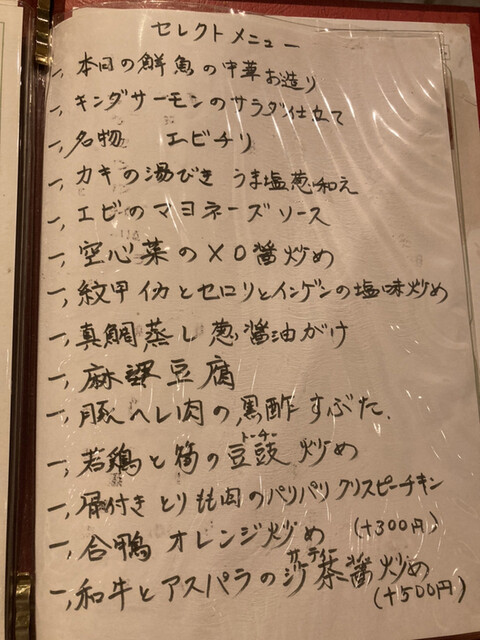 セレクトメニュー
一、本日の鮮魚の中華お造り
一、キングサーモンのサラダ仕立て
一、名物 エビチリ
一、カキの湯びき うま塩葱和え
一、エビのマヨネーズソース
一、空心菜のXO醤炒め
一、紋甲イカとセロリとインゲンの塩味炒め
一、真鯛蒸し葱醤油がけ
一、麻婆豆腐
一、豚ヘレ肉の黒酢すぶた.
一、若鶏と筍の豆豉炒め
トーチー
一、骨付きとりもも肉のパリパリクリスピーチキン
一、合鴨オレンジ炒め (+300円)
一、和牛とアスパラの沙茶醤炒め
サーチャー
(+500円)